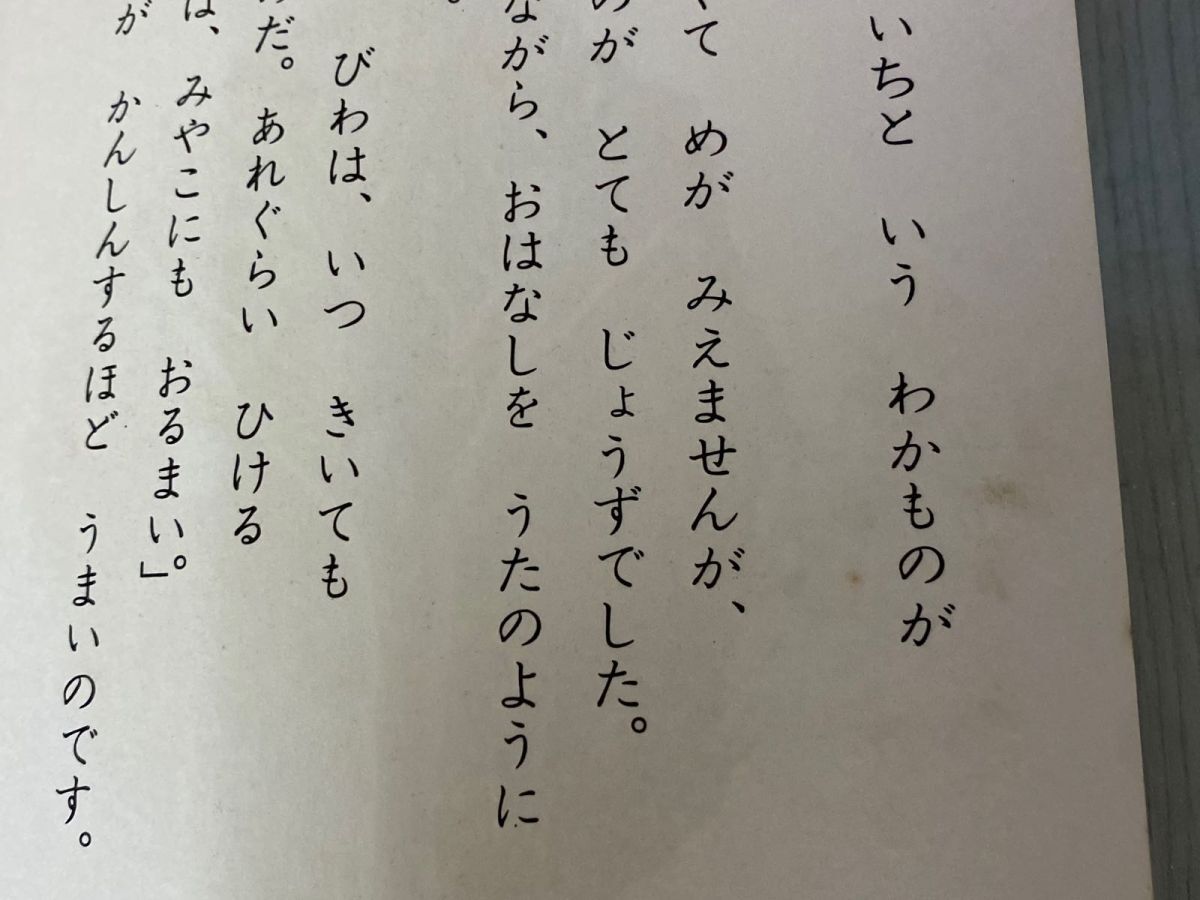 いちと いう わかものが
て めが みえませんが、
のが とても じょうずでした。
ながら、おはなしを うたのように
。
びわは、いつ きいても
だ。あれぐらい ひける
は、 みやこにも おるまい。」
が かんしんするほど うまいのです。